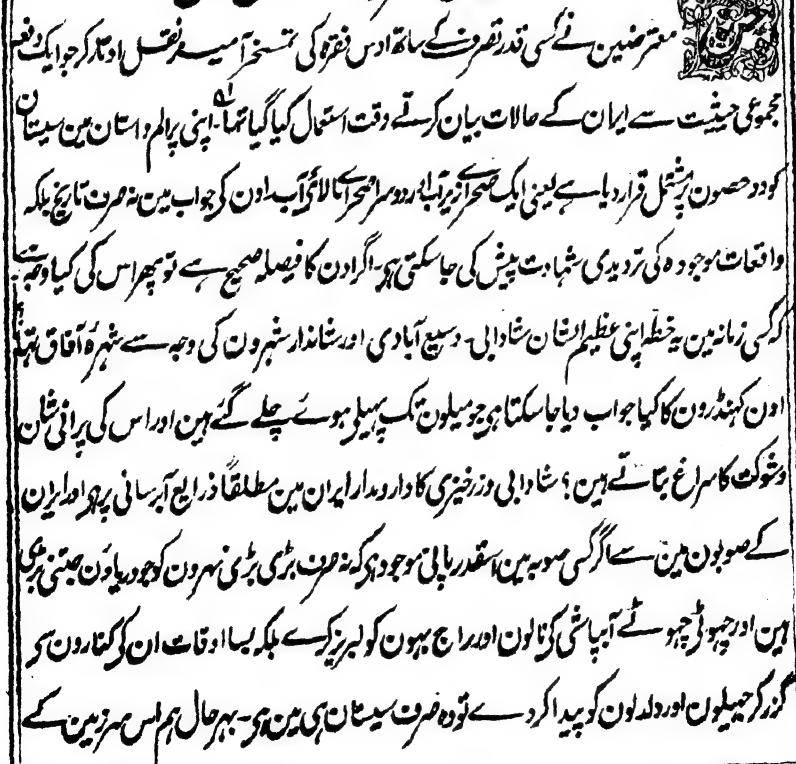 معترضین نے کسی قدر تصرف کے ساتھ اوس فقرہ کی تمسخر آمیز نقل اوتار کر جو ایک دفعہ
مجموعی حیثیت سے ایران کے حالات بیان کرتے وقت استعمال کیا گیا تھا۔ اپنی پر الم داستان مین سیستان
کو دو حصون پر مشتمل قرار دیا ہے یعنی ایک صحرائے زیر آب اور دوسرا صحرائے بالائے آب اون کی جواب مین نہ صرف تاریخ بلکہ
واقعات موجودہ کی تردیدی شہادت پیش کی جاسکتی ہی۔ اگر ادن کا فیصلہ صحیح ہے تو پھر اس کی کیا وجہ ہے
کہ کسی زمانہ مین یہ خطہ اپنی عظیم الشان شادابی۔ وسیع آبادی اور شاندار شہرون کی وجہ سے شہرۂ آفاق تھا
اون کہنڈرون کا کیا جواب دیا جاسکتا ہی جو میلون تک پھیلی ہوئے چلے گئے ہین اور اس کی پرانی شان
وشوکت کا سراغ بتاتے ہین؟ شادابی وزرخیزی کا دار ومدار ایران مین مطلقاً ذرایع آبرسانی پر ہی اور ایران
کے صوبون مین سے اگر کسی صوبہ مین اسقدر پانی موجود ہی کہ نہ صرف بڑی بڑی نہرون کو جو دریاؤن جتنی بڑی
ہین اور چہوٹی چہوٹے آبپاشی کی نالون اور راج بہون کو لبریز کرے بلکہ بسا اوقات ان کی کنارون سی
گزر کر جہیلون اور دلدلون کو پیدا کردے تو وہ صرف سیستان ہی مین ہی۔ بہر حال ہم اس سرزمین کے